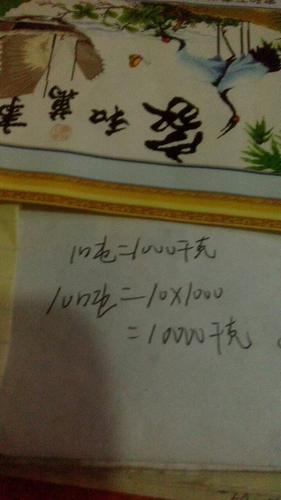 家和萬事
1吨=1000千克
10吨=10×1000
=10000千克